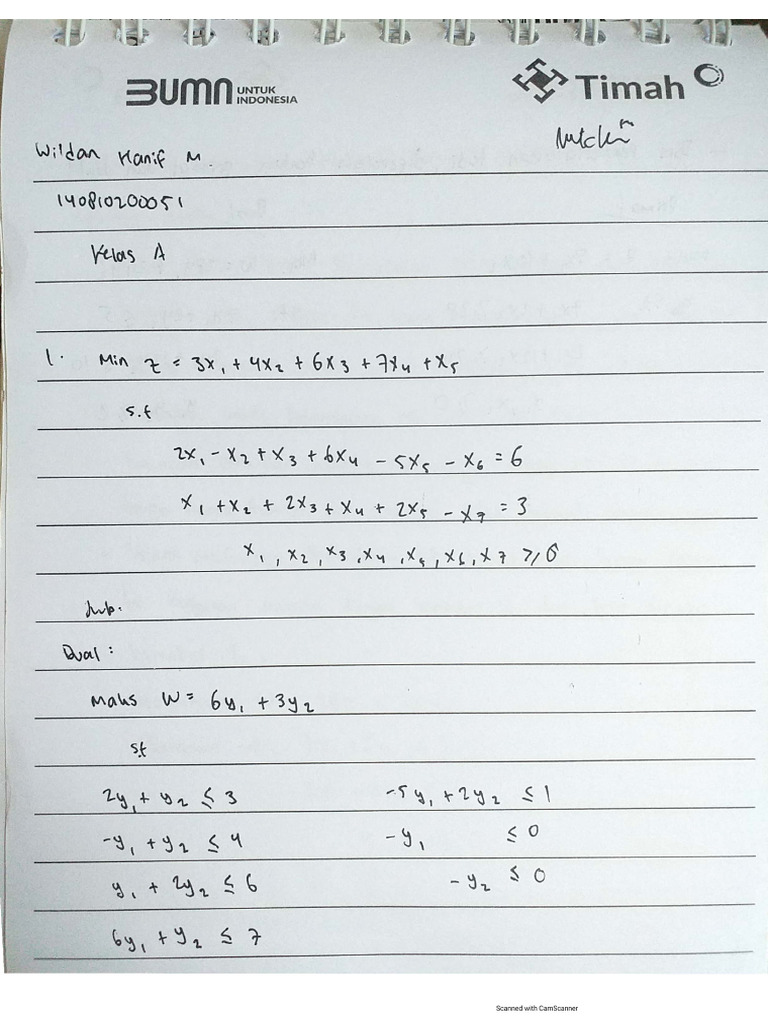 BUMN UNTUK INDONESIA
Timah
Wildan Hanif M
140810200051
Kelas A
1. Min z = 3x₁ + 4x₂ + 6x₃ + 7x₄ + x₅
s.t
2x₁ - x₂ + x₃ + 6x₄ - 5x₅ - x₆ = 6
x₁ + x₂ + 2x₃ + x₄ + 2x₅ - x₇ = 3
x₁, x₂, x₃, x₄, x₅, x₆, x₇ ≥ 0
Jwb.
Dual :
Maks W = 6y₁ + 3y₂
st
2y₁ + y₂ ≤ 3 -5y₁ + 2y₂ ≤ 1
-y₁ + y₂ ≤ 4 -y₁ ≤ 0
y₁ + 2y₂ ≤ 6 -y₂ ≤ 0
6y₁ + y₂ ≤ 7
Scanned with CamScanner